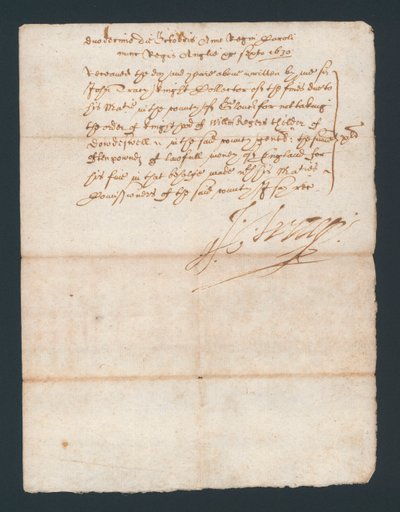 duodecimo die Octobris Anno Regni Caroli
nunc Regis Anglie &c Sexto 1630
Received the day and yeare above written by me Sr
John Tracy Knight Collector of the fines due to
his Matie in the County of Glouc for not taking
the order of knighthood of Willm Rogers thelder of
Dowdeswell in the said county gent: the some
of tenpowndes of lawfull money of England for
his fine in that behalfe made wth his Maties
Comissioners of the said county I say rec
Jo: Tracy: